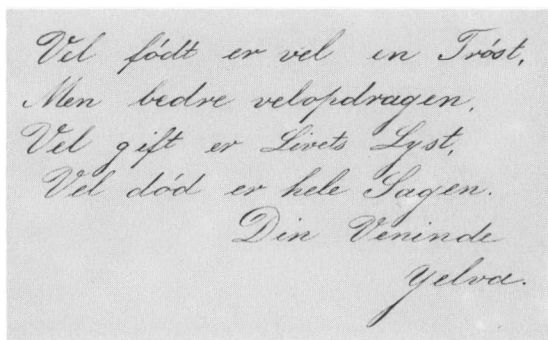 Vel födt er vel en Tröst,
Men bedre velopdragen,
Vel gift er Livets Lyst,
Vel död er hele Sagen.
Din Veninde
Yelva.